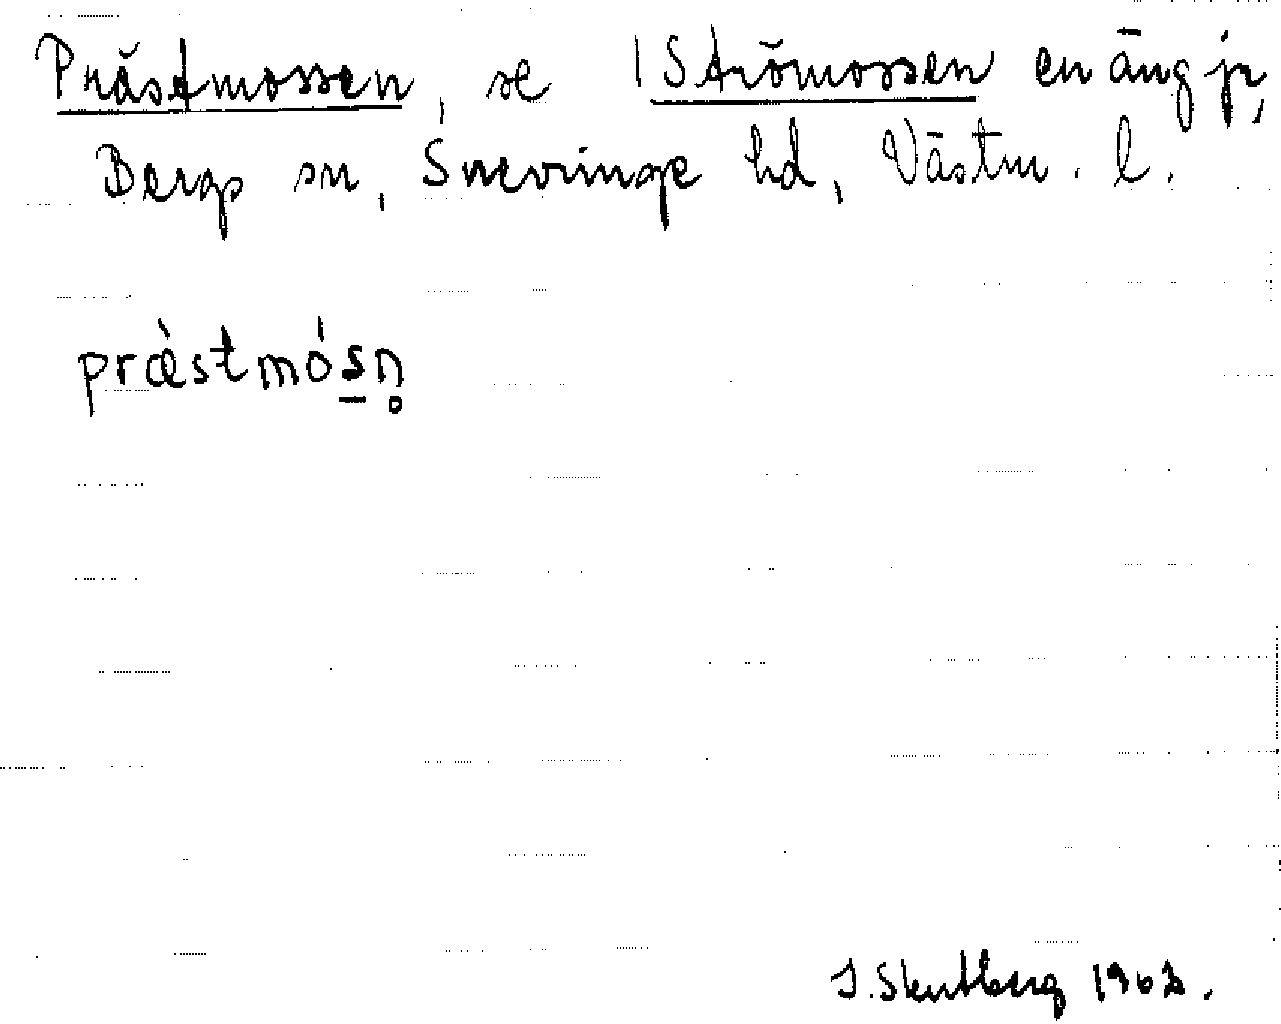 Prästmossen, se 1 Strömossen en äng jr,
Bergs sn, Snevringe hd, Västm. l.
præ̀stmósn̥
1962.